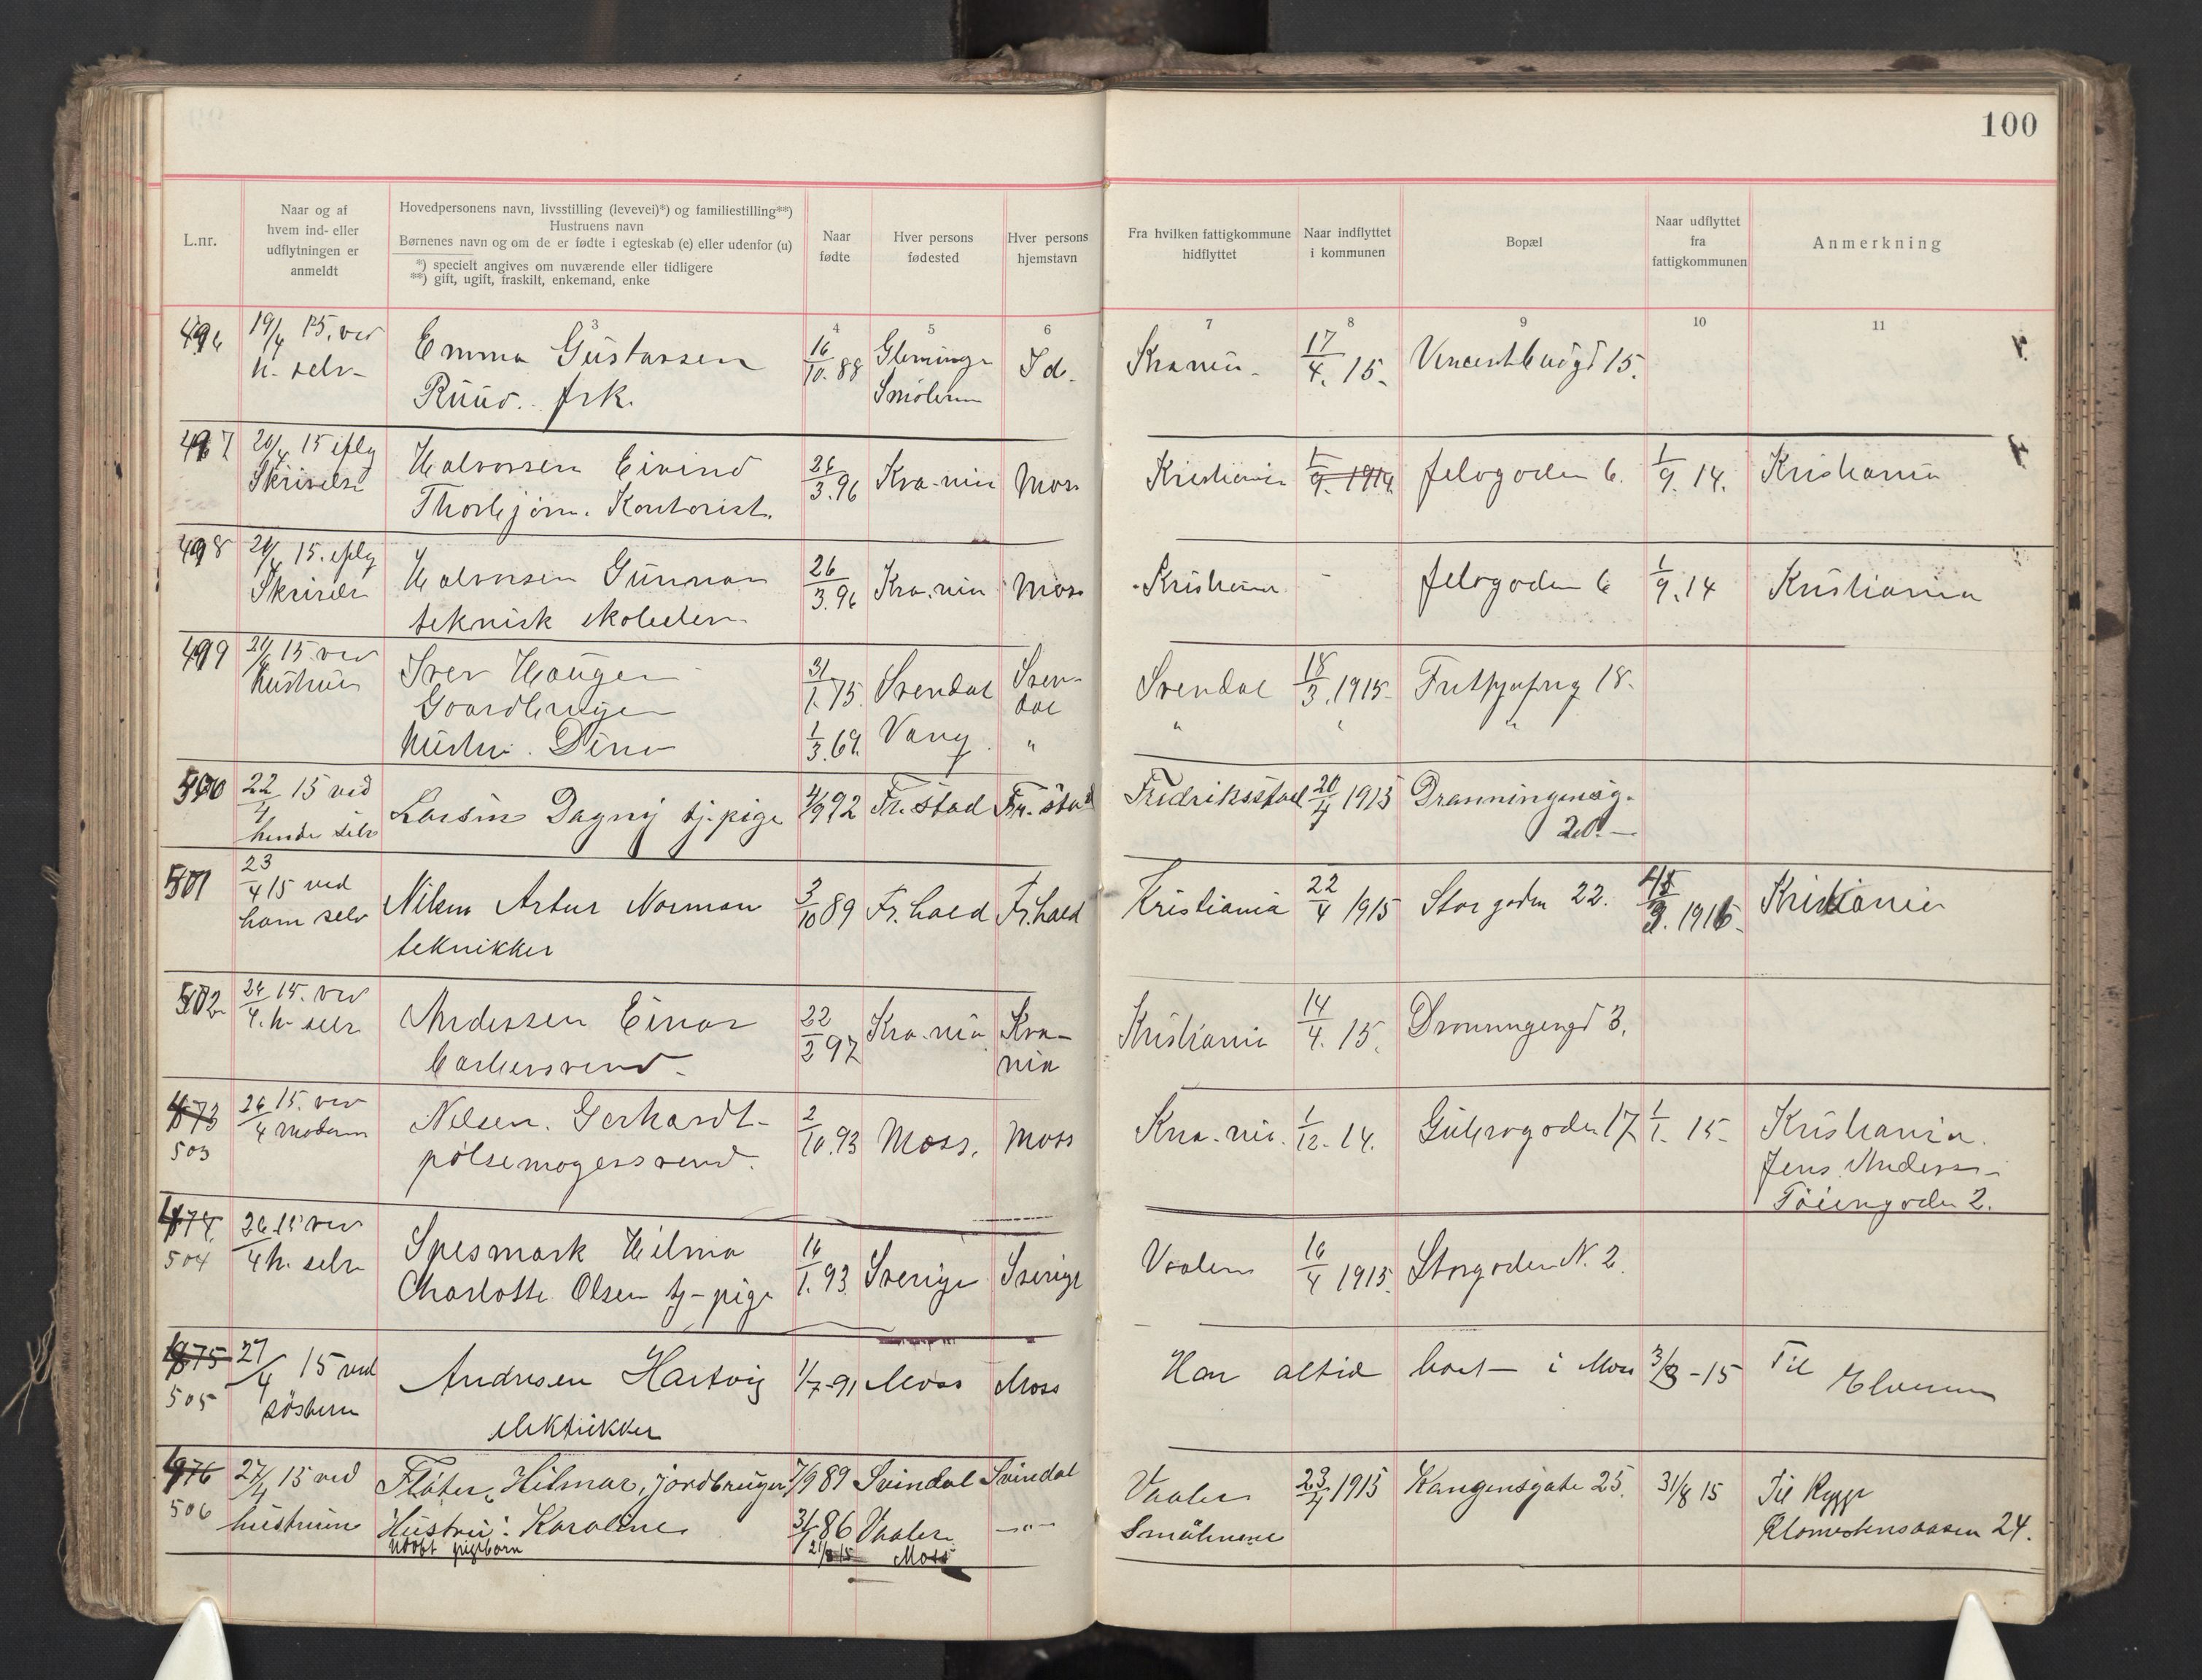 100
L.nr.
Naar og af
hvem ind- eller
udflytningen er
anmeldt
Hovedpersonens navn, livsstilling (levevei)*) og familiestilling**)
Hustruens navn
Børnenes navn og om de er fødte i egteskab (e) eller udenfor (u)
*) specielt angives om nuværende eller tidligere
**) gift, ugift, fraskilt, enkemand, enke
Naar
fødte
Hver persons
fødested
Hver persons
hjemstavn
Fra hvilken fattigkommune
hidflyttet
Naar indflyttet
i kommunen
Bopæl
Naar udflyttet
fra
fattigkommunen
Anmerkning
3 4 5 6 7 8 9 10 11
496 19/4 15. ved Emma Gustavsen 16/10. 88 Id. 17/4. 15. 15.
h. selv Ruud. frk.
497 20/4 15 iflg Halvorsen Eivind 26/3. 96 Kra.nia Moss Kristiania 1/9. 1914 6. 1/9. 14. Kristiania
Skrivelse Thorbjørn. Kontorist.
498 20/4 15. iflg Halvorsen Gunnar 26/3. 96 Kra.nia Moss Kristiania - 6 1/9. 14 Kristiania
Skrivelse teknisk skoleelev
499 21/4 15. ved Iver Haugen 31/1. 75. Svendal Sven- Svendal 18/3. 1915. 18.
hustruen Gaardbruger dal
Hustru. Dina 1/3. 69. Vang "  "  "  "
500 22/4 15 ved Larsen Dagny tj. pige 4/9 92 Fr.stad Fr.stad Fredriksstad 20/4 1915 Dronningensg.
hende selv 20.-
501 23/4 15 ved Nilsen Artur Norman 3/10 89 Fr.hald Fr.hald Kristiania 22/4 1915 Storgaden 22. 1916. Kristiania
ham selv teknikker
502 24/4. 15. ved Andersen Einar 22/2 97 Kra.nia Kra- Kristiania 14/4. 15. Dronningensgd 3.
h. selv barbersvend. nia
473 26/4 15. ved Nilsen. Gerhardt 2/10. 93 Moss. Moss Kra.nia. 1/12. 14. 17 1/1. 15. Kristiania.
503 moderen pølsemagersvend. Jens Anders-
Tøiengaden 2.
474 26/4 15 ved Spesmark Hilma 16/1. 93. Sverige Sverige Vaaler 16/4 1915. Storgaden N. 2.
504 h. selv Charlotte Olsen tj-pige
475 27/4 15 ved Andresen Hartvig 1/7-91 Moss Moss Har altid boet i Moss 3/3-15 Til Elverum
505 søsteren elektrikker
476 27/4 15 ved Flater, Hilmar, jordbruger 7/9 89 Svindal Svindal Vaaler 23/4 1915 Kongensgate 25. 31/8 15 Til Rygge
506 hustruen Hustru: Karoline 86 Vaaler -"- Smålenene 24.
Udøbt pigebarn 21/8 15 Moss